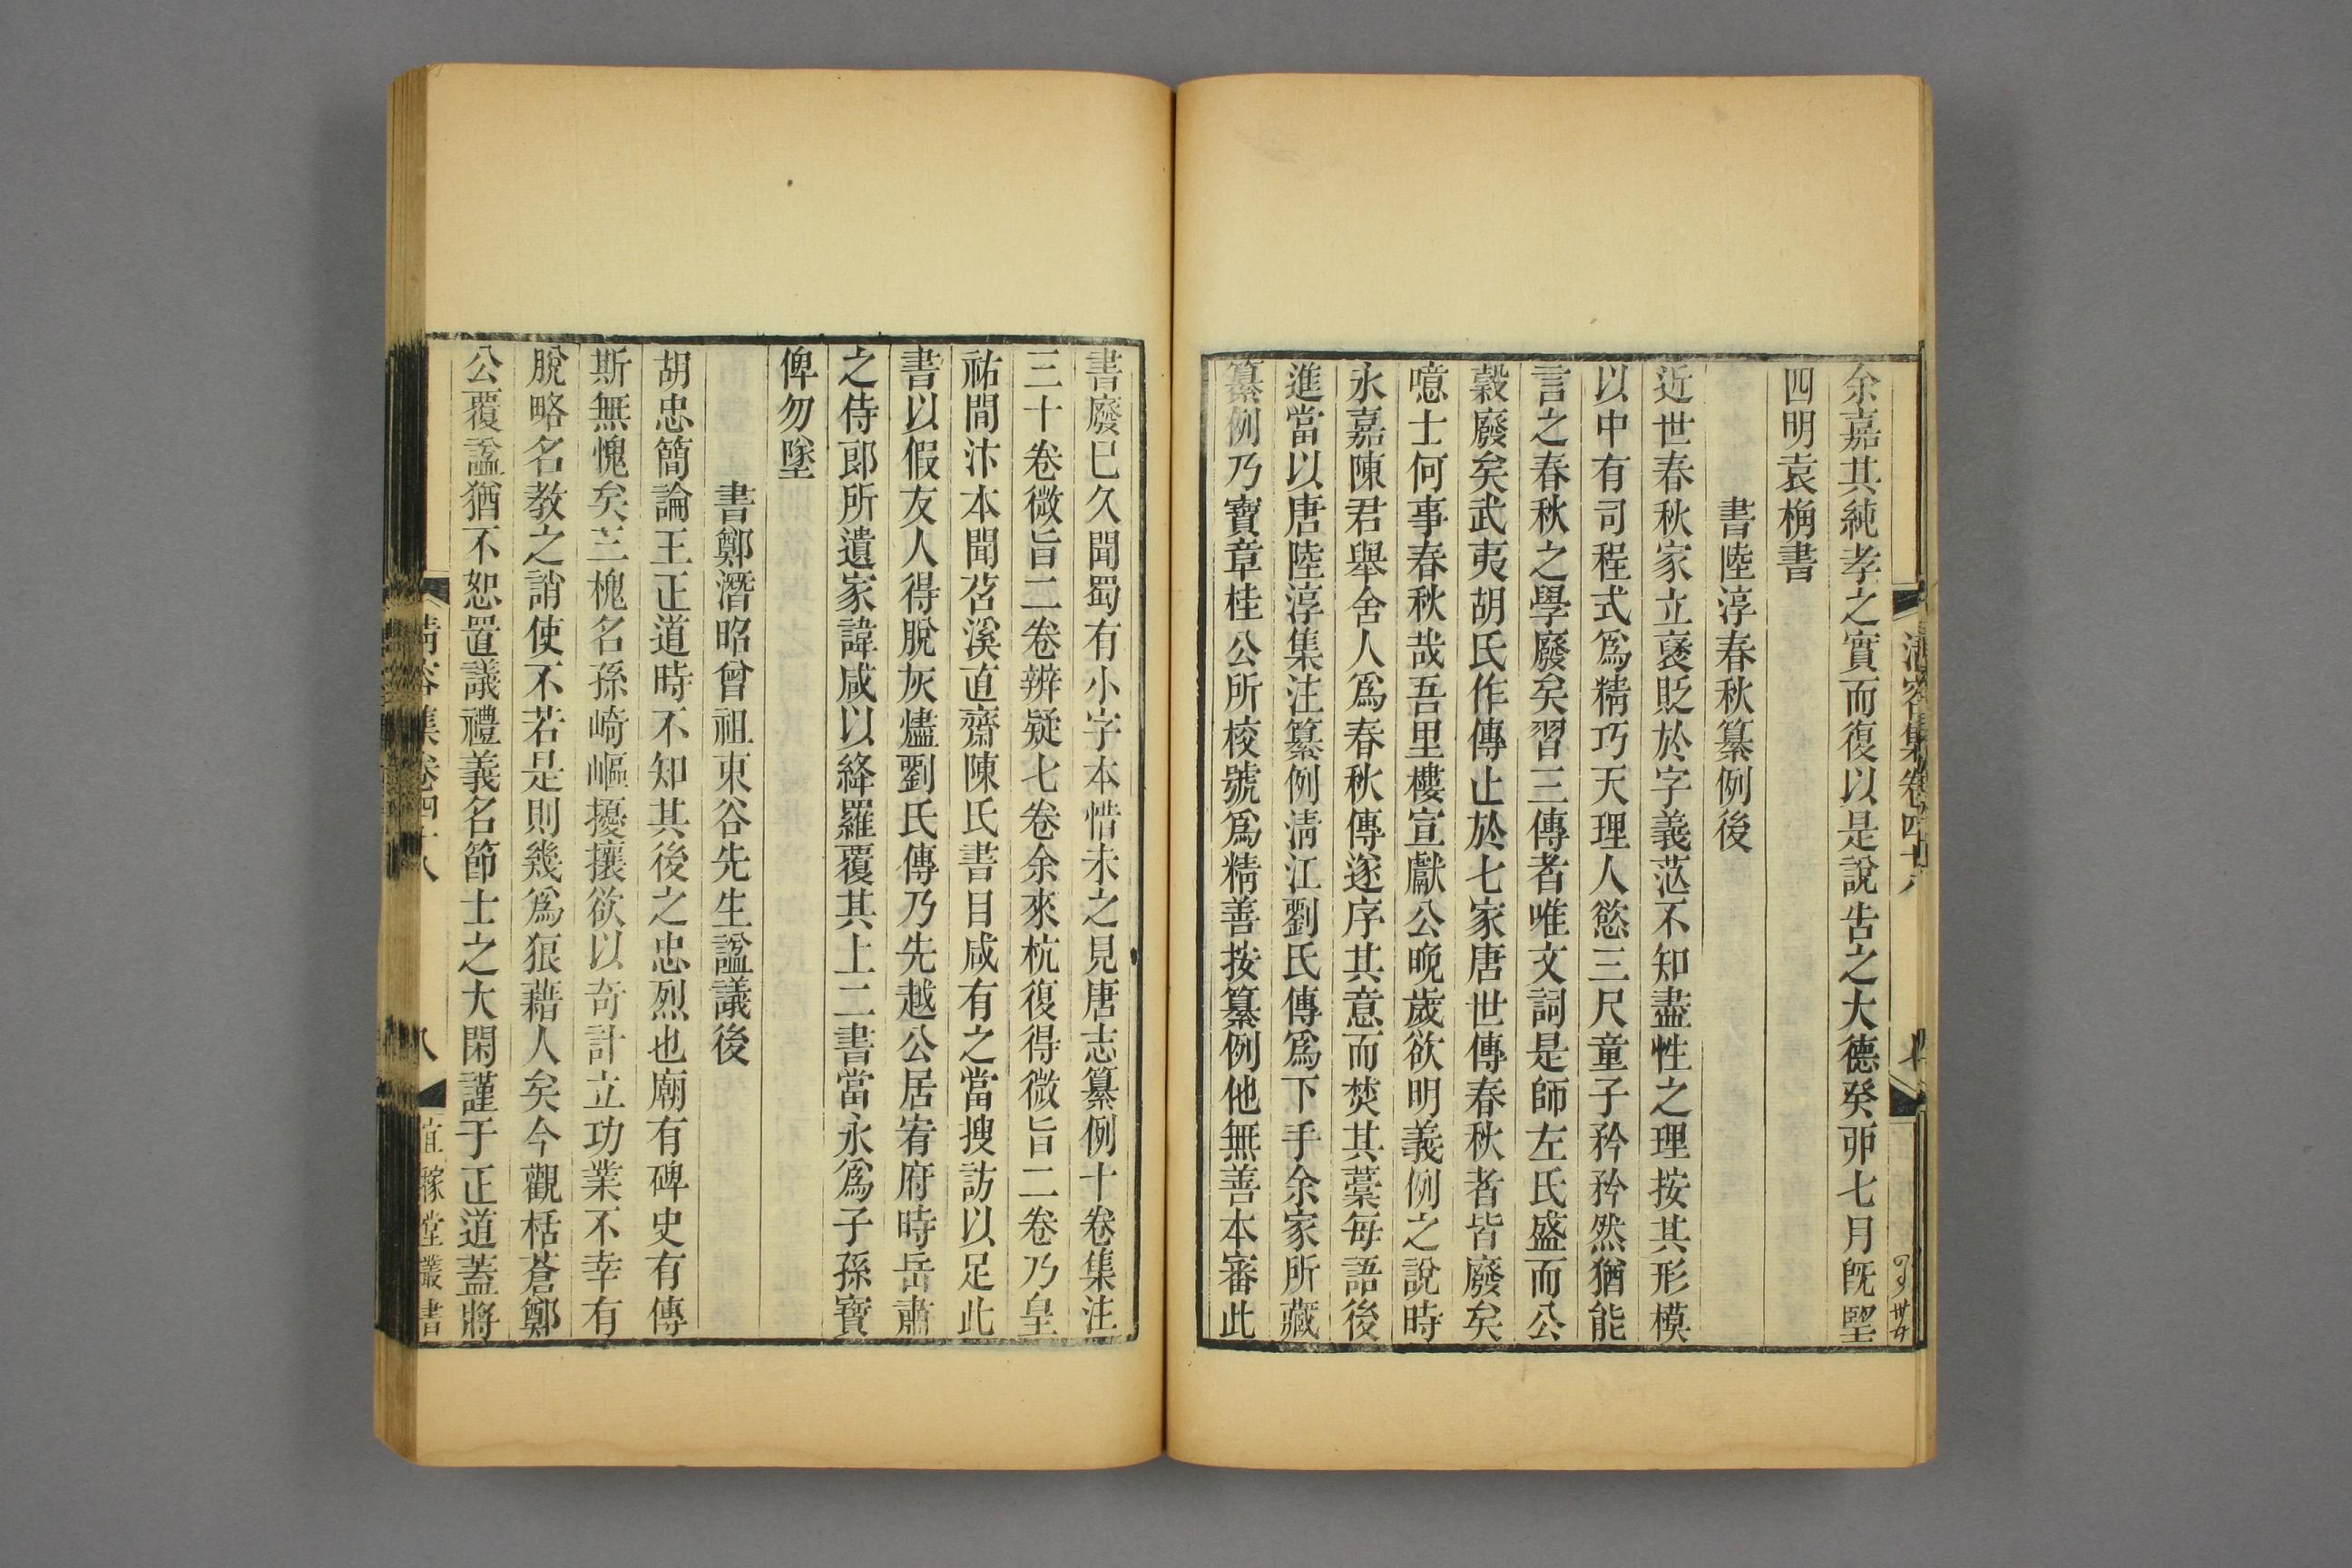 清容集卷四十八
七
余嘉其純孝之實而復以是說告之大德癸卯七月旣望
四明袁桷書
書陸淳春秋纂例後
近世春秋家立褒貶於字義茫不知盡性之理按其形模
以中有司程式爲精巧天理人慾三尺童子矜矜然猶能
言之春秋之學廢矣習三傳者唯文詞是師左氏盛而公
穀廢矣武夷胡氏作傳止於七家唐世傳春秋者皆廢矣
噫士何事春秋哉吾里樓宣獻公晚歲欲明義例之說時
永嘉陳君舉舍人爲春秋傳遂序其意而焚其藁每語後
進當以唐陸淳集注纂例淸江劉氏傳爲下手余家所藏
纂例乃寶章桂公所校號爲精善按纂例他無善本審此
書廢已久聞蜀有小字本惜未之見唐志纂例十卷集注
三十卷微旨二卷辨疑七卷余來杭復得微旨二卷乃皇
祐間汴本聞苕溪直齋陳氏書目咸有之當搜訪以足此
書以假友人得脫灰燼劉氏傳乃先越公居宥府時岳肅
之侍郎所遺家諱咸以絳羅覆其上二書當永爲子孫寶
俾勿墜
書鄭潛昭曾祖東谷先生諡議後
胡忠簡論王正道時不知其後之忠烈也廟有碑史有傳
斯無愧矣三槐名孫崎嶇擾攘欲以奇計立功業不幸有
脫略名教之誚使不若是則幾爲狼藉人矣今觀栝蒼鄭
公覆諡猶不恕置議禮義名節士之大閑謹于正道蓋將
清容集卷四十八
八
宜稼堂叢書